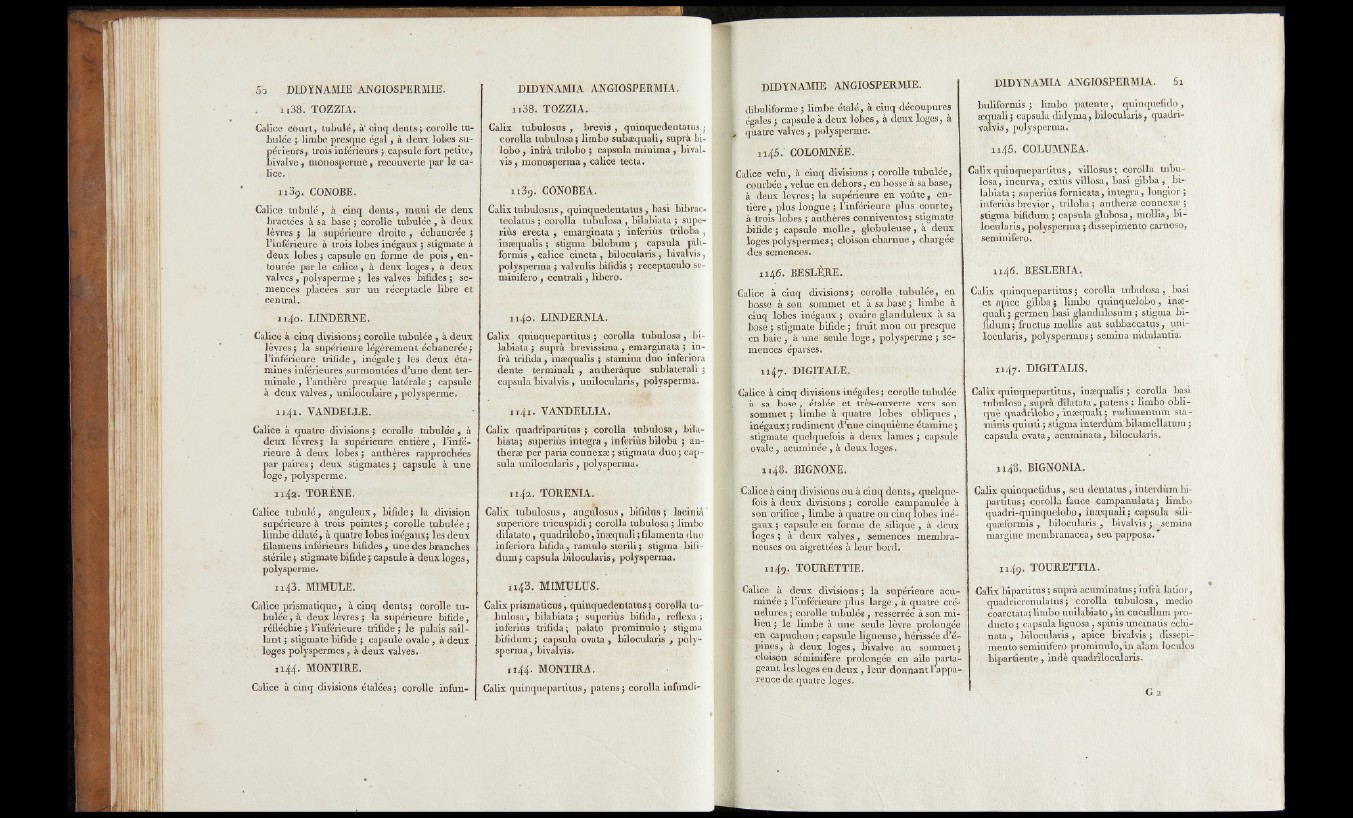 50 DIDYNAMIE ANGIOSPERMIE.
1138. TOZZIA.
Calice court, tubulé, à cinq dents; corolle tu-
bulée ; limbe presque égal , à deux lobes su-
périeurs, trois inférieurs ; capsule fort petite,
bivalve , monosperme , recouverte par le ca-
lice.
1139. CONOBE.
Calice tubulé , à cinq dents , muni de deux
bractées à sa base ; corolle tubulée , à deux
lèvres ; la supérieure droite , échancrée ;
l'inférieure à trois lobes inégaux ; stigmate à
deux lobes ; capsule en forme de pois , en-
tourée par le calice , à deux loges , à deux
valves , polysperme ; les valves bifides ; se-
mences placées sur un réceptacle libre et
central.
1140. LINDERNE.
Calice à cinq divisions ; corolle tubulée , à deux
lèvres ; la supérieure légèrement échancrée ;
l'inférieure trifide , inégale ; les deux éta-
mines inférieures surmontées d'une dent ter-
minale , l'anthère presque latérale ; capsule
à deux valves , uniloculaire , polysperme.
1141. VANDELLE.
Calice à quatre divisions ; corolle tubulée , à
deux lèvres ; la supérieure entière , l'infé-
rieure à deux lobes ; anthères rapprochées
par paires ; deux stigmates ; capsule à une
loge , polysperme.
1142. TORÈNE.
Calice tubulé, anguleux, bifide; la division
supérieure à trois pointes ; corolle tubulée ;
limbe dilaté, à quatre lobes inégaux; les deux
filamens inférieurs bifides, une des branches
stérile ; stigmate bifide ; capsule à deux loges,
polysperme.
1143. MIMULE.
Calice prismatique, à cinq dents; corolle tu-
bulée , à deux lèvres ; la supérieure bifide,
réfléchie ; l'inférieure trifide ; le palais sail-
lant ; stigmate bifide ; capsule ovale , à deux
loges polyspermes , à deux valves.
1144. MONTIRE.
Calice à cinq divisions étalées; corolle infun-
DIDYNAMIA ANGIOSPERMIA.
1138. TOZZIA.
Calix tubulosus , brevis , quinquedentatus ;
corolla tubulosa ; limbo subæquali, suprà bi-
lobo , infrà trilobo ; capsula minima , bival-
vis , monosperma , calice tecta.
1139. CONOBEA.
Calix tubulosus, quinquedentatus, basi bibrac-
teolatus ; corolla tubulosa , bilabiata ; supe-
riùs erecta , emarginata ; inferiùs triloba ,
inæqualis ; stigma bilobum ; capsula pili-
formis , calice cincta , bilocularis , bivalvis,
polysperma ; valvulis bifidis ; receptaculo se-
minifero , centrali , libero.
1140. LINDERNIA.
Calix quinquepartitus ; corolla tubulosa , bi-
labiata ; suprà brevissima , emarginata ; in-
frà trifida , inæqualis ; stamina duo inferiora
dente terminali , antheráque sublaterali ;
capsula bivalvis , unilocularis, polysperma.
1141. VANDELLIA.
Calix quadripartitus ; corolla tubulosa , bila-
biata; superiùs integra , inferiùs biloba ; an-
theræ per paria connexæ ; stigmata duo ; cap-
sula unilocularis , polysperma.
1142. TORENIA.
Calix tubulosus, angulosus , bifidus ; laciniâ
superiore tricuspidi ; corolla tubulosa ; limbo
dilatato , quadrilobo , inæquali; filamenta duo
inferiora bifida , ramulo sterili ; stigma bifi-
dum ; capsula bilocularis, polysperma.
1143. MIMULUS.
Calix prismaticus, quinquedentatus; corolla tu-
bulosa, bilabiata ; superiùs bifida, reflexa ;
inferiùs trifida ; palato prominulo ; stigma
bifidum ; capsula ovata , bilocularis , poly-
sperma, bivalvis.
1144. MONTIRA.
Calix quinquepartitus, patens; corolla infundi-
DIDYNAMIE ANGIOSPERMIE.
dibuliforme ; limbe étalé, à cinq découpures
égales ; capsule à deux lobes, à deux loges, à
quatre valves , polysperme.
1145. COLOMNÉE.
Calice velu, à cinq divisions ; corolle tubulée,
courbée , velue en dehors, en bosse à sa base,
à deux lèvres ; la supérieure en voûte, en-
tière , plus longue ; l'inférieure plus courte,
à trois lobes ; anthères conniventes ; stigmate
bifide ; capsule molle , globuleuse , à deux
loges polyspermes ; cloison charnue , chargée
des semences.
1146. BESLÈRE.
Calice à cinq divisions; corolle tubulée, en
bosse à son sommet et à sa base ; limbe à
cinq lobes inégaux ; ovaire glanduleux à sa
base ; stigmate bifide ; fruit mou ou presque
en baie , à une seule loge , polysperme ; se-
mences éparses.
1147. DIGITALE.
Calice à cinq divisions inégales; corolle tubulée
à sa base, étalée et très-ouverte vers son
sommet ; limbe à quatre lobes obliques ,
inégaux; rudiment d'une cinquième étamine ;
stigmate quelquefois à deux lames ; capsule
ovale , acuminée , à deux loges.
1148. BIGNONE.
Calice à cinq divisions ou à cinq dents, quelque-
fois à deux divisions ; corolle campanulée à
son orifice , limbe à quatre ou cinq lobes iné-
gaux ; capsule en forme de silique , à deux
loges ; à deux valves, semences membra-
neuses ou aigrettées à leur bord.
1149. TOURETTIE.
Calice à deux divisions ; la supérieure acu-
minée ; l'inférieure plus large , à quatre cré-
nelures ; corolle tubulée , resserrée à son mi-
lieu ; le limbe à une seule lèvre prolongée
en capuchon ; capsule ligneuse , hérissée d'é-
pines , à deux loges , bivalve au sommet ;
cloison séminifère prolongée en aile parta-
geant les loges en deux , leur donnant l'appa-
rence de quatre loges.
DIDYNAMIA ANGIOSPERMIA. 51
buliformis ; limbo patente, quinquefido ,
æquali ; capsula didyma, bilocularis, quadri-
valvis, polysperma.
1145. COLUMNEA.
Calix quinquepartitus, villosus ; corolla tubu-
losa , incurva, extùs villosa, basi gibba , bi-
labiata ; superiùs fornicata , integra , longior ;
inferiùs brevior , triloba ; antheræ connexæ ;
stigma bifidum ; capsula globosa, mollis, bi-
locularis, polysperma ; dissepimento carnoso,
seminifero.
1146. BESLERIA.
Calix quinquepartitus ; corolla tubulosa, basi
et apice gibba ; limbo quinquelobo , inæ-
quali ; germen basi glandulosum ; stigma bi-
fidum ; fructus mollis aut subbaccatus , uni-
locularis, polyspermus ; semina nidulantia.
1147. DIGITALIS.
Calix quinquepartitus, inæqualis ; corolla basi
tubulosa, suprà dilatata, patens ; limbo obli-
què quadrilobo , inæquali ; rudimentum sta-
minis quinti ; stigma interdùm bilamellatum ;
capsula ovata, acuminata , bilocularis.
1148. BIGNONIA.
Calix quinquefidus, seu dentatus, interdùm bi-
partitus; corolla fauce campanulata ; limbo
quadri-quinquelobo , inæquali ; capsula sili-
quæformis , bilocularis , bivalvis ; semina
margine membranacea, seu papposa.
1149. TOURETTIA.
Calix bipartitus ; suprà acuminatus ; infrà latior,
quadricrenulatus ; corolla tubulosa , medio
coarctata; limbo unilabiato , in cucullum pro-
ducto ; capsula lignosa , spinis uncinatis echi-
nata , bilocularis , apice bivalvis ; dissepi-
mento seminifero prominulo, in alam loculos
bipartiente , indè quadrilocularis.
G 2